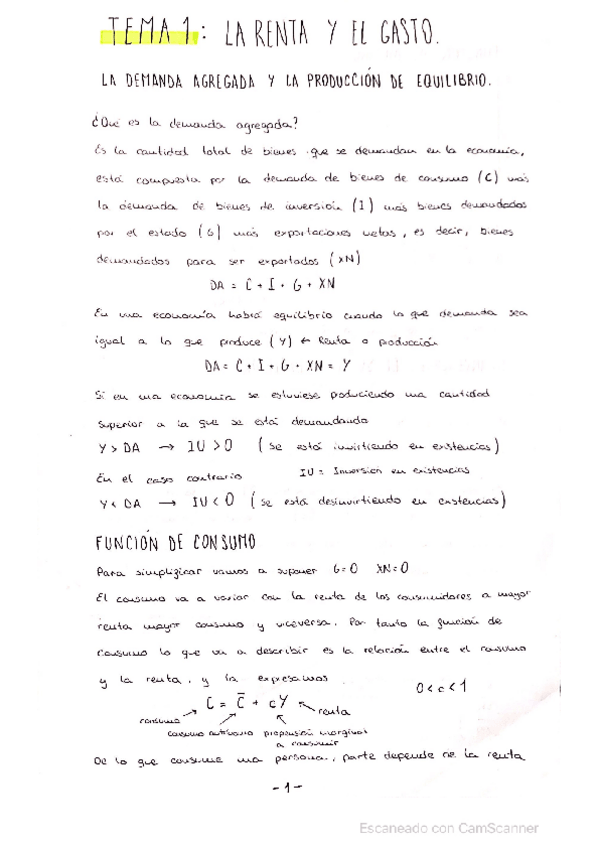 TEMA 1: LA RENTA Y EL GASTO.
LA DEMANDA AGREGADA Y LA PRODUCCIÓN DE EQUILIBRIO.
¿Qué es la demanda agregada?
Es la cantidad total de bienes que se demandan en la economía,
está compuesta por la demanda de bienes de consumo (C) más
la demanda de bienes de inversión (I) más bienes demandados
por el estado (G) más exportaciones netas, es decir, bienes
demandados para ser exportados (XN)
DA = C + I + G + XN
En una economía habrá equilibrio cuando lo que demanda sea
igual a lo que produce (Y) ← Renta o producción
DA = C + I + G + XN = Y
Si en una economía se estuviese produciendo una cantidad
superior a la que se está demandando
Y > DA → IU > 0 (se está invirtiendo en existencias)
En el caso contrario IU = Inversión en existencias
Y < DA → IU < 0 (se está desinvirtiendo en existencias)
FUNCIÓN DE CONSUMO
Para simplificar vamos a suponer G=0 XN=0
El consumo va a variar con la renta de los consumidores a mayor
renta mayor consumo y viceversa. Por tanto la función de
consumo lo que va a describir es la relación entre el consumo
y la renta, y la expresamos
0 < c < 1
C = C̄ + cY
consumo renta
consumo autónomo propensión marginal
a consumir
De lo que consume una persona, parte depende de la renta
- 1 -
Escaneado con CamScanner